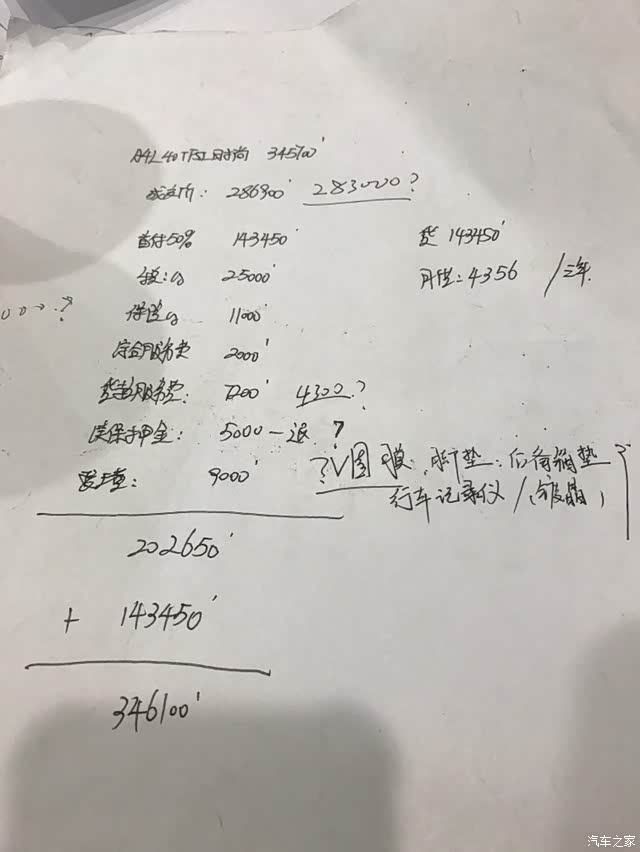 A4L 40TFSI 时尚 345700
成交价: 286900 283000?
首付50% 143450 贷 143450
税: 25000 月供: 4356 /三年
保险 11000
综合服务费 2000
贷款服务费: 7200 4300?
续保押金: 5000-退 ?
9000 ?V国 膜. 脚垫. 后备箱垫
行车记录仪 /
202650
+ 143450
346100
汽车之家